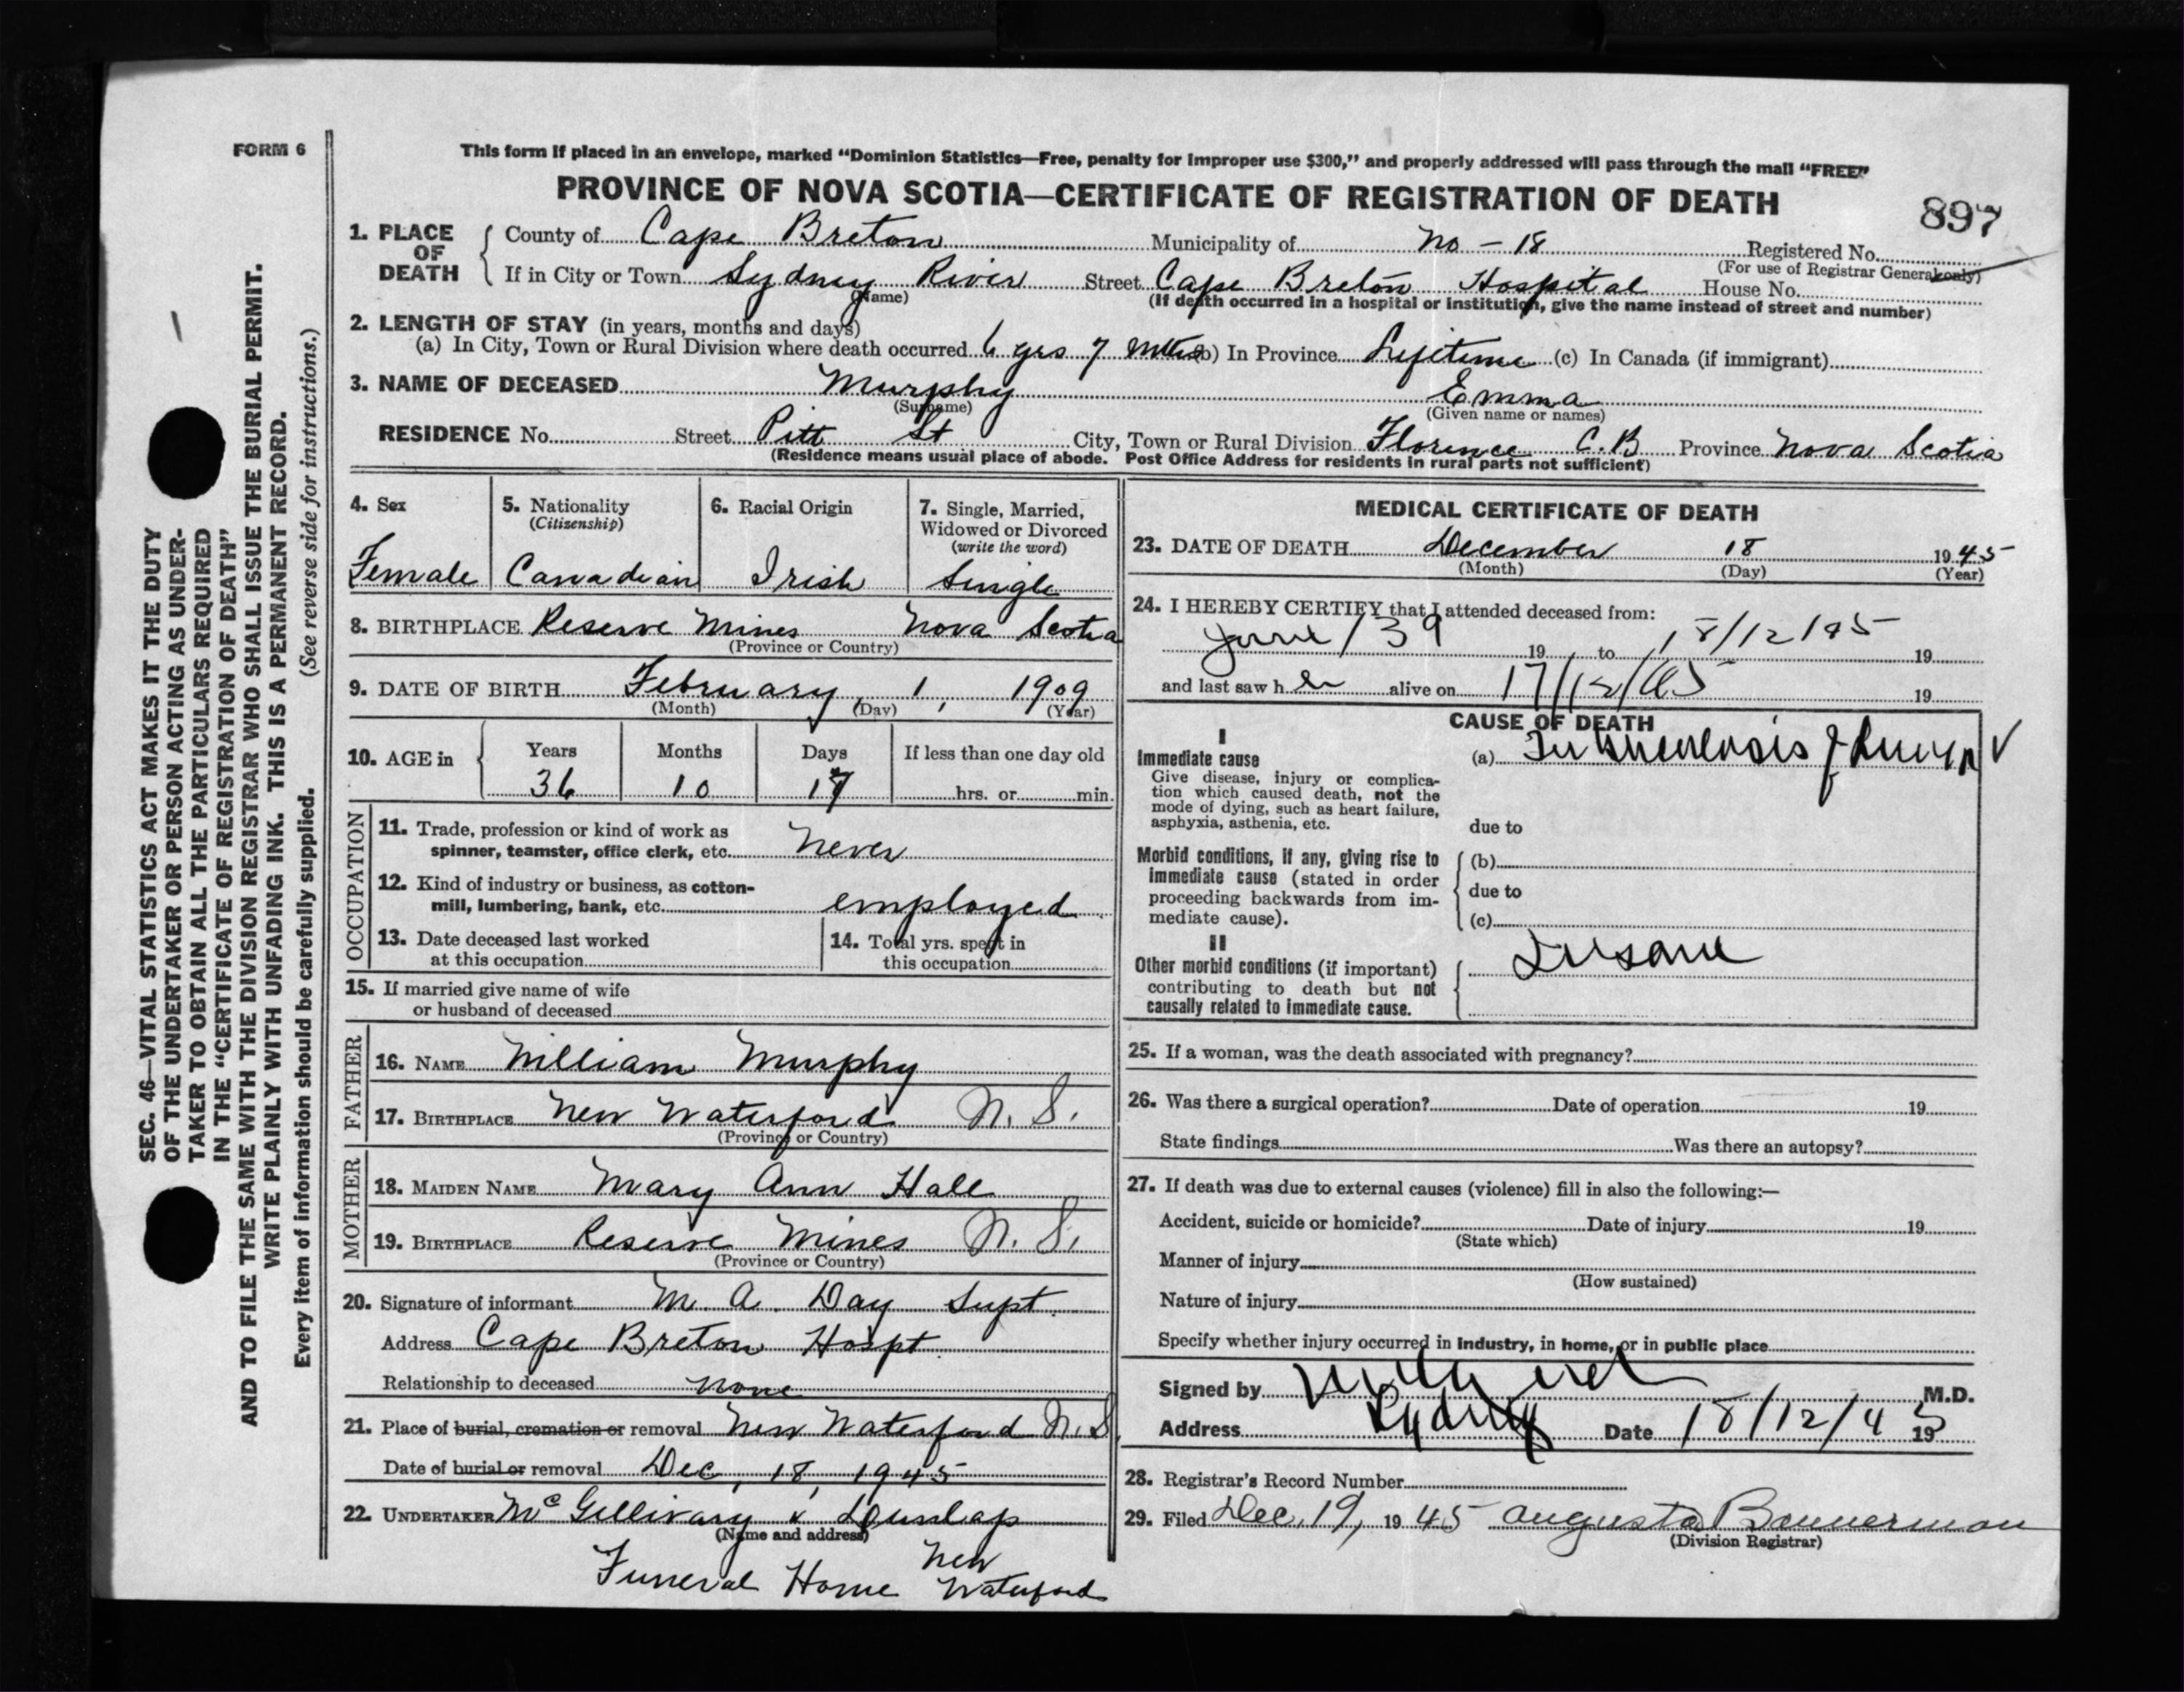 FORM 6
This form if placed in an envelope, marked “Dominion Statistics—Free, penalty for improper use $300,” and properly addressed will pass through the mail “FREE”
PROVINCE OF NOVA SCOTIA—CERTIFICATE OF REGISTRATION OF DEATH
897
1. PLACE OF DEATH
County of Cape Breton Municipality of No - 18 Registered No.
(For use of Registrar General only)
If in City or Town Sydney River Street Cape Breton Hospital House No.
(Name) (If death occurred in a hospital or institution, give the name instead of street and number)
2. LENGTH OF STAY (in years, months and days)
(a) In City, Town or Rural Division where death occurred 6 yrs 7 mths (b) In Province Lifetime (c) In Canada (if immigrant)
3. NAME OF DECEASED Murphy Emma
(Surname) (Given name or names)
RESIDENCE No. Street Pitt St City, Town or Rural Division Florence C.B Province Nova Scotia
(Residence means usual place of abode. Post Office Address for residents in rural parts not sufficient)
4. Sex
Female
5. Nationality
(Citizenship)
Canadian
6. Racial Origin
Irish
7. Single, Married,
Widowed or Divorced
(write the word)
Single
8. BIRTHPLACE Reserve Mines Nova Scotia
(Province or Country)
9. DATE OF BIRTH February, 1, 1909
(Month) (Day) (Year)
10. AGE in
Years Months Days If less than one day old
36 10 17 hrs. or min.
OCCUPATION
11. Trade, profession or kind of work as
spinner, teamster, office clerk, etc. Never
12. Kind of industry or business, as cotton-
mill, lumbering, bank, etc. employed
13. Date deceased last worked
at this occupation
14. Total yrs. spent in
this occupation
15. If married give name of wife
or husband of deceased
FATHER
16. NAME William Murphy
17. BIRTHPLACE New Waterford N. S.
(Province or Country)
MOTHER
18. MAIDEN NAME Mary Ann Hall
19. BIRTHPLACE Reserve Mines N. S.
(Province or Country)
20. Signature of informant M. A. Day Supt.
Address Cape Breton Hospt.
Relationship to deceased none
21. Place of burial, cremation or removal New Waterford N.S.
Date of burial or removal Dec, 18, 1945
22. UNDERTAKER McGillivary & Dunlap
(Name and address)
Funeral Home New Waterford
MEDICAL CERTIFICATE OF DEATH
23. DATE OF DEATH December 18 1945
(Month) (Day) (Year)
24. I HEREBY CERTIFY that I attended deceased from:
June / 39 19 to 18/12/45 19
and last saw her alive on 17/12/45 19
CAUSE OF DEATH
I
Immediate cause
Give disease, injury or complica-
tion which caused death, not the
mode of dying, such as heart failure,
asphyxia, asthenia, etc.
(a) Tuberculosis of Lungs
due to
Morbid conditions, if any, giving rise to
immediate cause (stated in order
proceeding backwards from im-
mediate cause).
(b)
due to
(c)
II
Other morbid conditions (if important)
contributing to death but not
causally related to immediate cause.
Insane
25. If a woman, was the death associated with pregnancy?
26. Was there a surgical operation? Date of operation 19
State findings Was there an autopsy?
27. If death was due to external causes (violence) fill in also the following:—
Accident, suicide or homicide? Date of injury 19
(State which)
Manner of injury
(How sustained)
Nature of injury
Specify whether injury occurred in industry, in home, or in public place
Signed by M.D.
Address Sydney Date 18/12/45 19
28. Registrar's Record Number
29. Filed Dec. 19, 1945 Augusta Bannerman
(Division Registrar)
SEC. 46—VITAL STATISTICS ACT MAKES IT THE DUTY
OF THE UNDERTAKER OR PERSON ACTING AS UNDER-
TAKER TO OBTAIN ALL THE PARTICULARS REQUIRED
IN THE “CERTIFICATE OF REGISTRATION OF DEATH”
AND TO FILE THE SAME WITH THE DIVISION REGISTRAR WHO SHALL ISSUE THE BURIAL PERMIT.
WRITE PLAINLY WITH UNFADING INK. THIS IS A PERMANENT RECORD.
Every item of information should be carefully supplied. (See reverse side for instructions.)